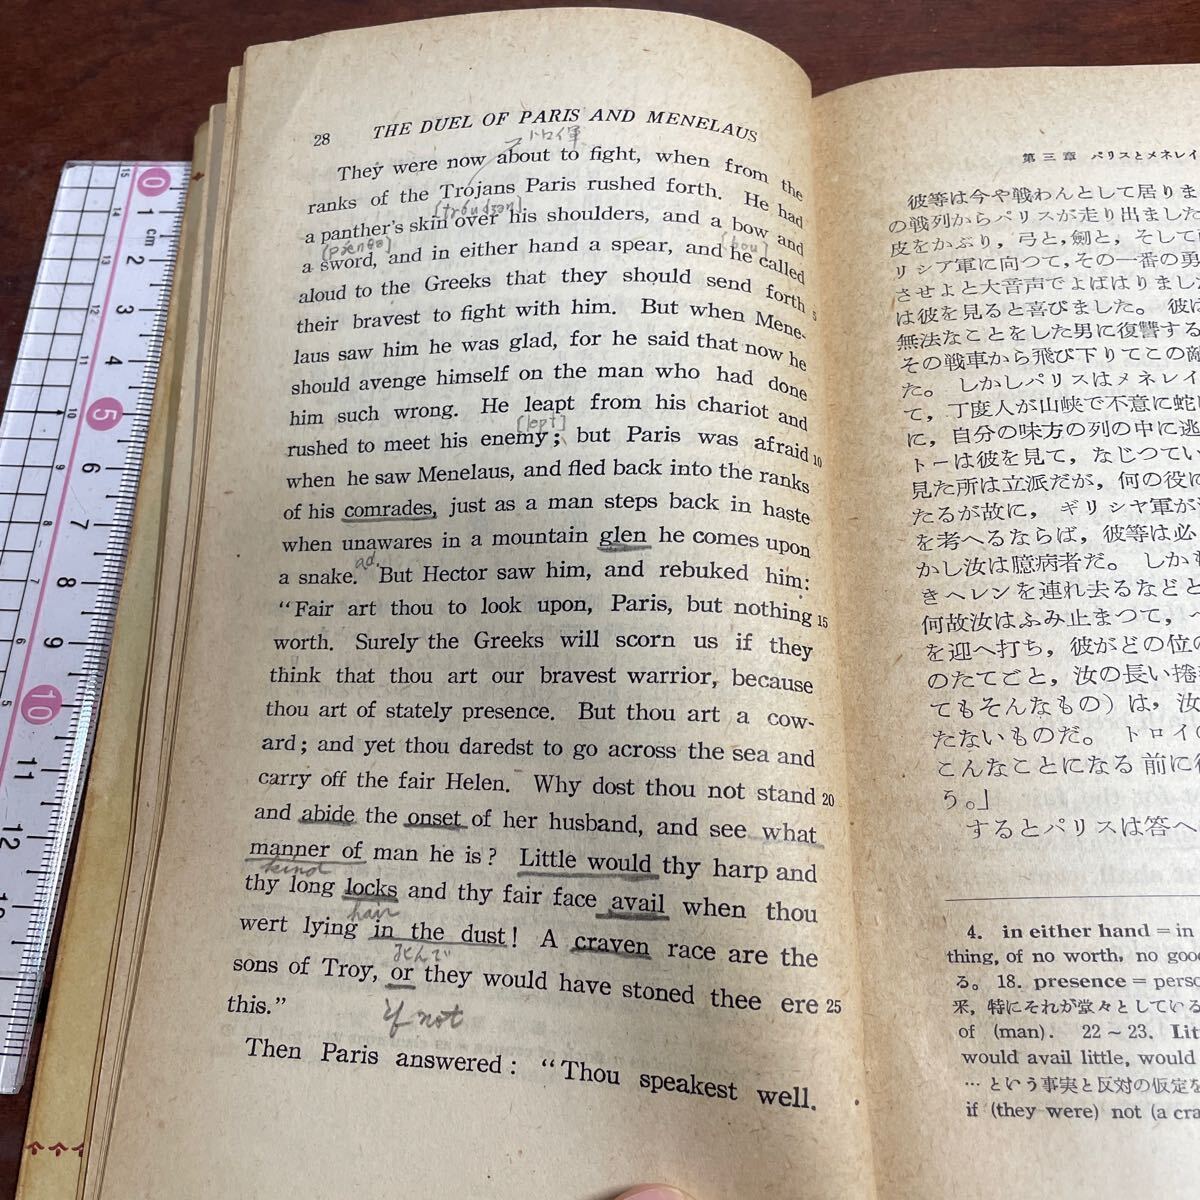 28 THE DUEL OF PARIS AND MENELAUS
トロイ軍
They were now about to fight, when from the
ranks of the Trojans Paris rushed forth. He had
[tróudʒən]
a panther's skin over his shoulders, and a bow and
[bou]
a sword, and in either hand a spear, and he called
aloud to the Greeks that they should send forth 5
their bravest to fight with him. But when Mene-
laus saw him he was glad, for he said that now he
should avenge himself on the man who had done
him such wrong. He leapt from his chariot and
[lept]
rushed to meet his enemy; but Paris was afraid 10
when he saw Menelaus, and fled back into the ranks
of his comrades, just as a man steps back in haste
when unawares in a mountain glen he comes upon
ad.
a snake. But Hector saw him, and rebuked him:
“Fair art thou to look upon, Paris, but nothing 15
worth. Surely the Greeks will scorn us if they
think that thou art our bravest warrior, because
thou art of stately presence. But thou art a cow-
ard; and yet thou daredst to go across the sea and
carry off the fair Helen. Why dost thou not stand 20
and abide the onset of her husband, and see what
manner of man he is? Little would thy harp and
kind
thy long locks and thy fair face avail when thou
hair
wert lying in the dust! A craven race are the
死んで
sons of Troy, or they would have stoned thee ere 25
if not
this.”
Then Paris answered: “Thou speakest well.
第三章 パリスとメネレイ
彼等は今や戦わんとして居りま
の戦列からパリスが走り出ました
皮をかぶり，弓と，剣と，そして
リシア軍に向つて，その一番の勇
させよと大音声でよばはりました
は彼を見ると喜びました。 彼は
無法なことをした男に復讐する
その戦車から飛び下りてこの敵
た。 しかしパリスはメネレイ
て，丁度人が山峡で不意に蛇に
に，自分の味方の列の中に逃
トーは彼を見て，なじつてい
見た所は立派だが，何の役に
たるが故に， ギリシヤ軍が
を考へるならば，彼等は必
かし汝は臆病者だ。 しかも
きヘレンを連れ去るなどと
何故汝はふみ止まつて，
を迎へ打ち，彼がどの位の
のたてごと，汝の長い捲
てもそんなもの）は，汝
たないものだ。 トロイの
こんなことになる前に彼
う。」
するとパリスは答へ
4. in either hand = in
thing, of no worth, no good
る。 18. presence = perso
米，特にそれが堂々としている
of (man). 22～23. Lit
would avail little, would
…という事実と反対の仮定を
if (they were) not (a cra
0 1 cm 2 3 4 5 6 7 8 9 10 11 12